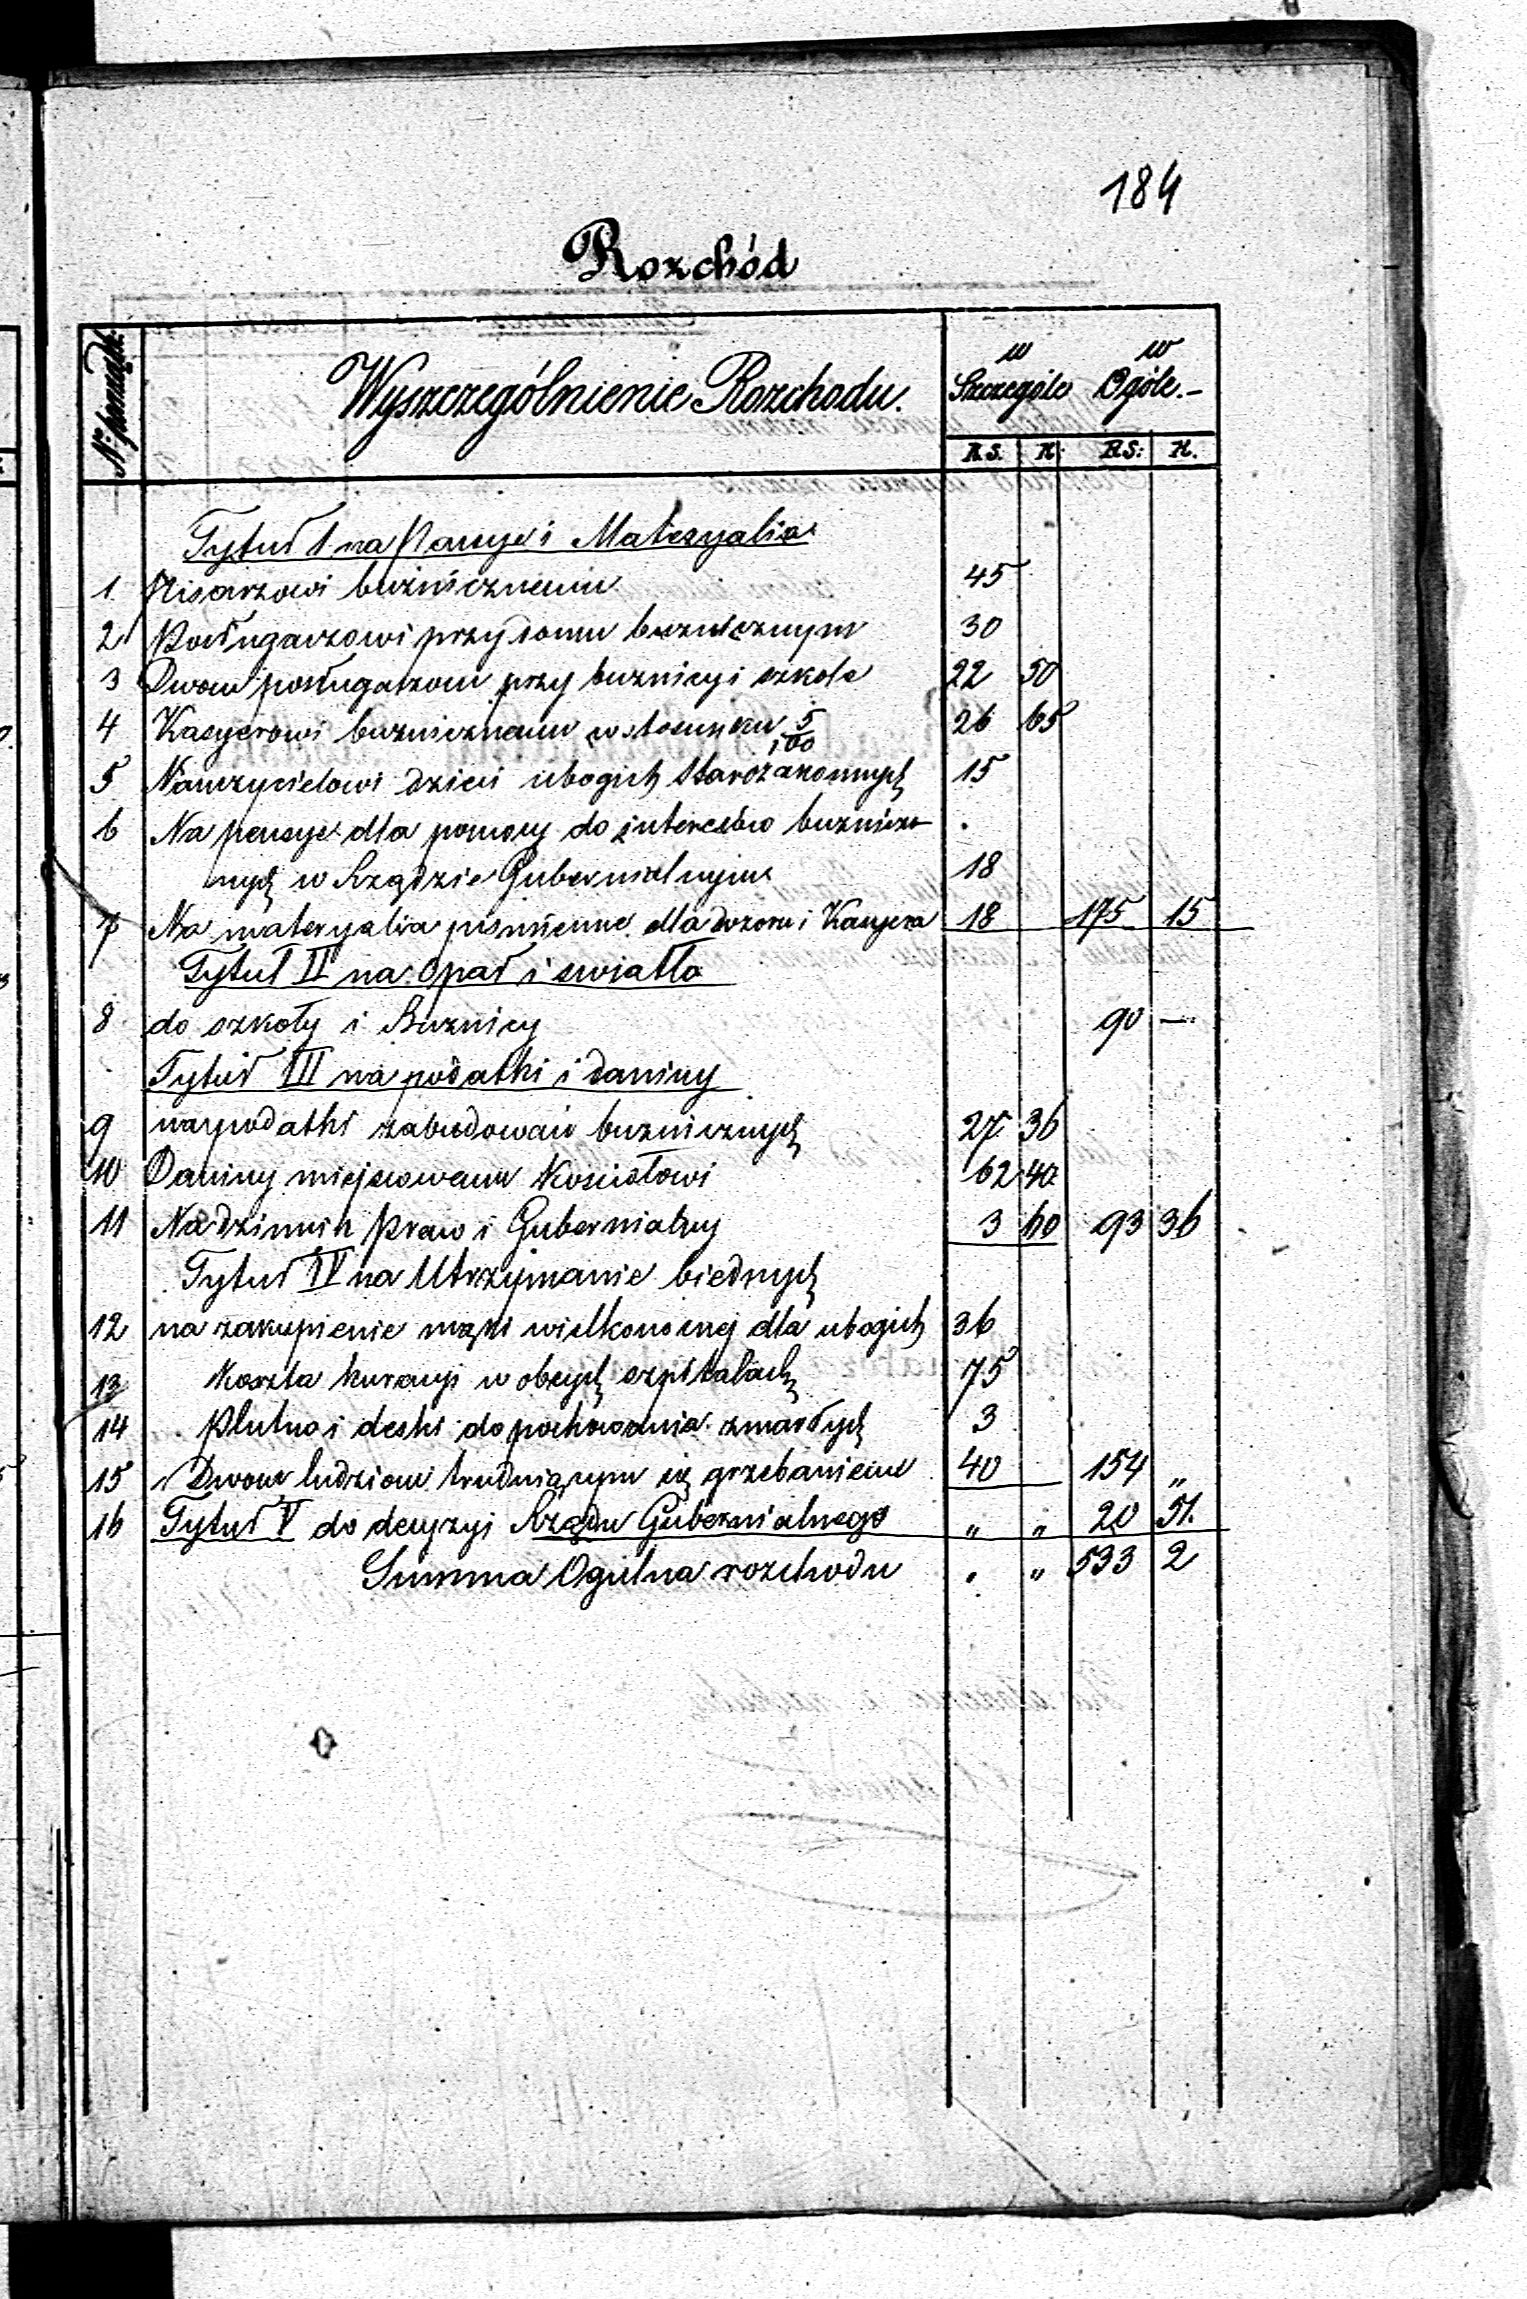 184
Rozchód
Nr porządk. Wyszczególnienie Rozchodu. w Szczególe w Ogóle.-
RS. K. RS: K.
Tytuł I na Pensye i Materyalia
1 Pisarzowi buźnicznemu 45
2 Posługaczowi przy domu buznicznym 30
3 Dwom posługaczom przy buznicy i szkole 22 50
4 Kasyerowi buznicznemu w stosunku 5/100 26 65
5 Nauczycielowi dzieci ubogich Starozakonnych 15
6 Na pensye dla pomocy do interesów buznicz-
nych w Rządzie Gubernialnym 18
7 Na materyalia piśmienne dla dozoru i Kasyera 18 175 15
Tytuł II na opał i swiatło
8 do szkoły i Buznicy 90 —
Tytuł III na podatki i daniny
9 na podatki zabudowań buznicznych 27 36
10 Daniny miejscowemu Kosciołowi 62 40
11 Na dziennik Praw i Gubernialny 3 60 93 36
Tytuł IV na Utrzymanie biednych
12 na zakupienie mąki wielkonocnej dla ubogich 36
13 Koszta kuracyi w obcych szpitalach 75
14 Płutno i deski do pochowania zmarłych 3
15 Dwom ludziom trudniącym się grzebaniem 40 154 „
16 Tytuł V do decyzyi Rządu Gubernialnego „ „ 20 51.
Summa Ogulna rozchodu „ „ 533 2